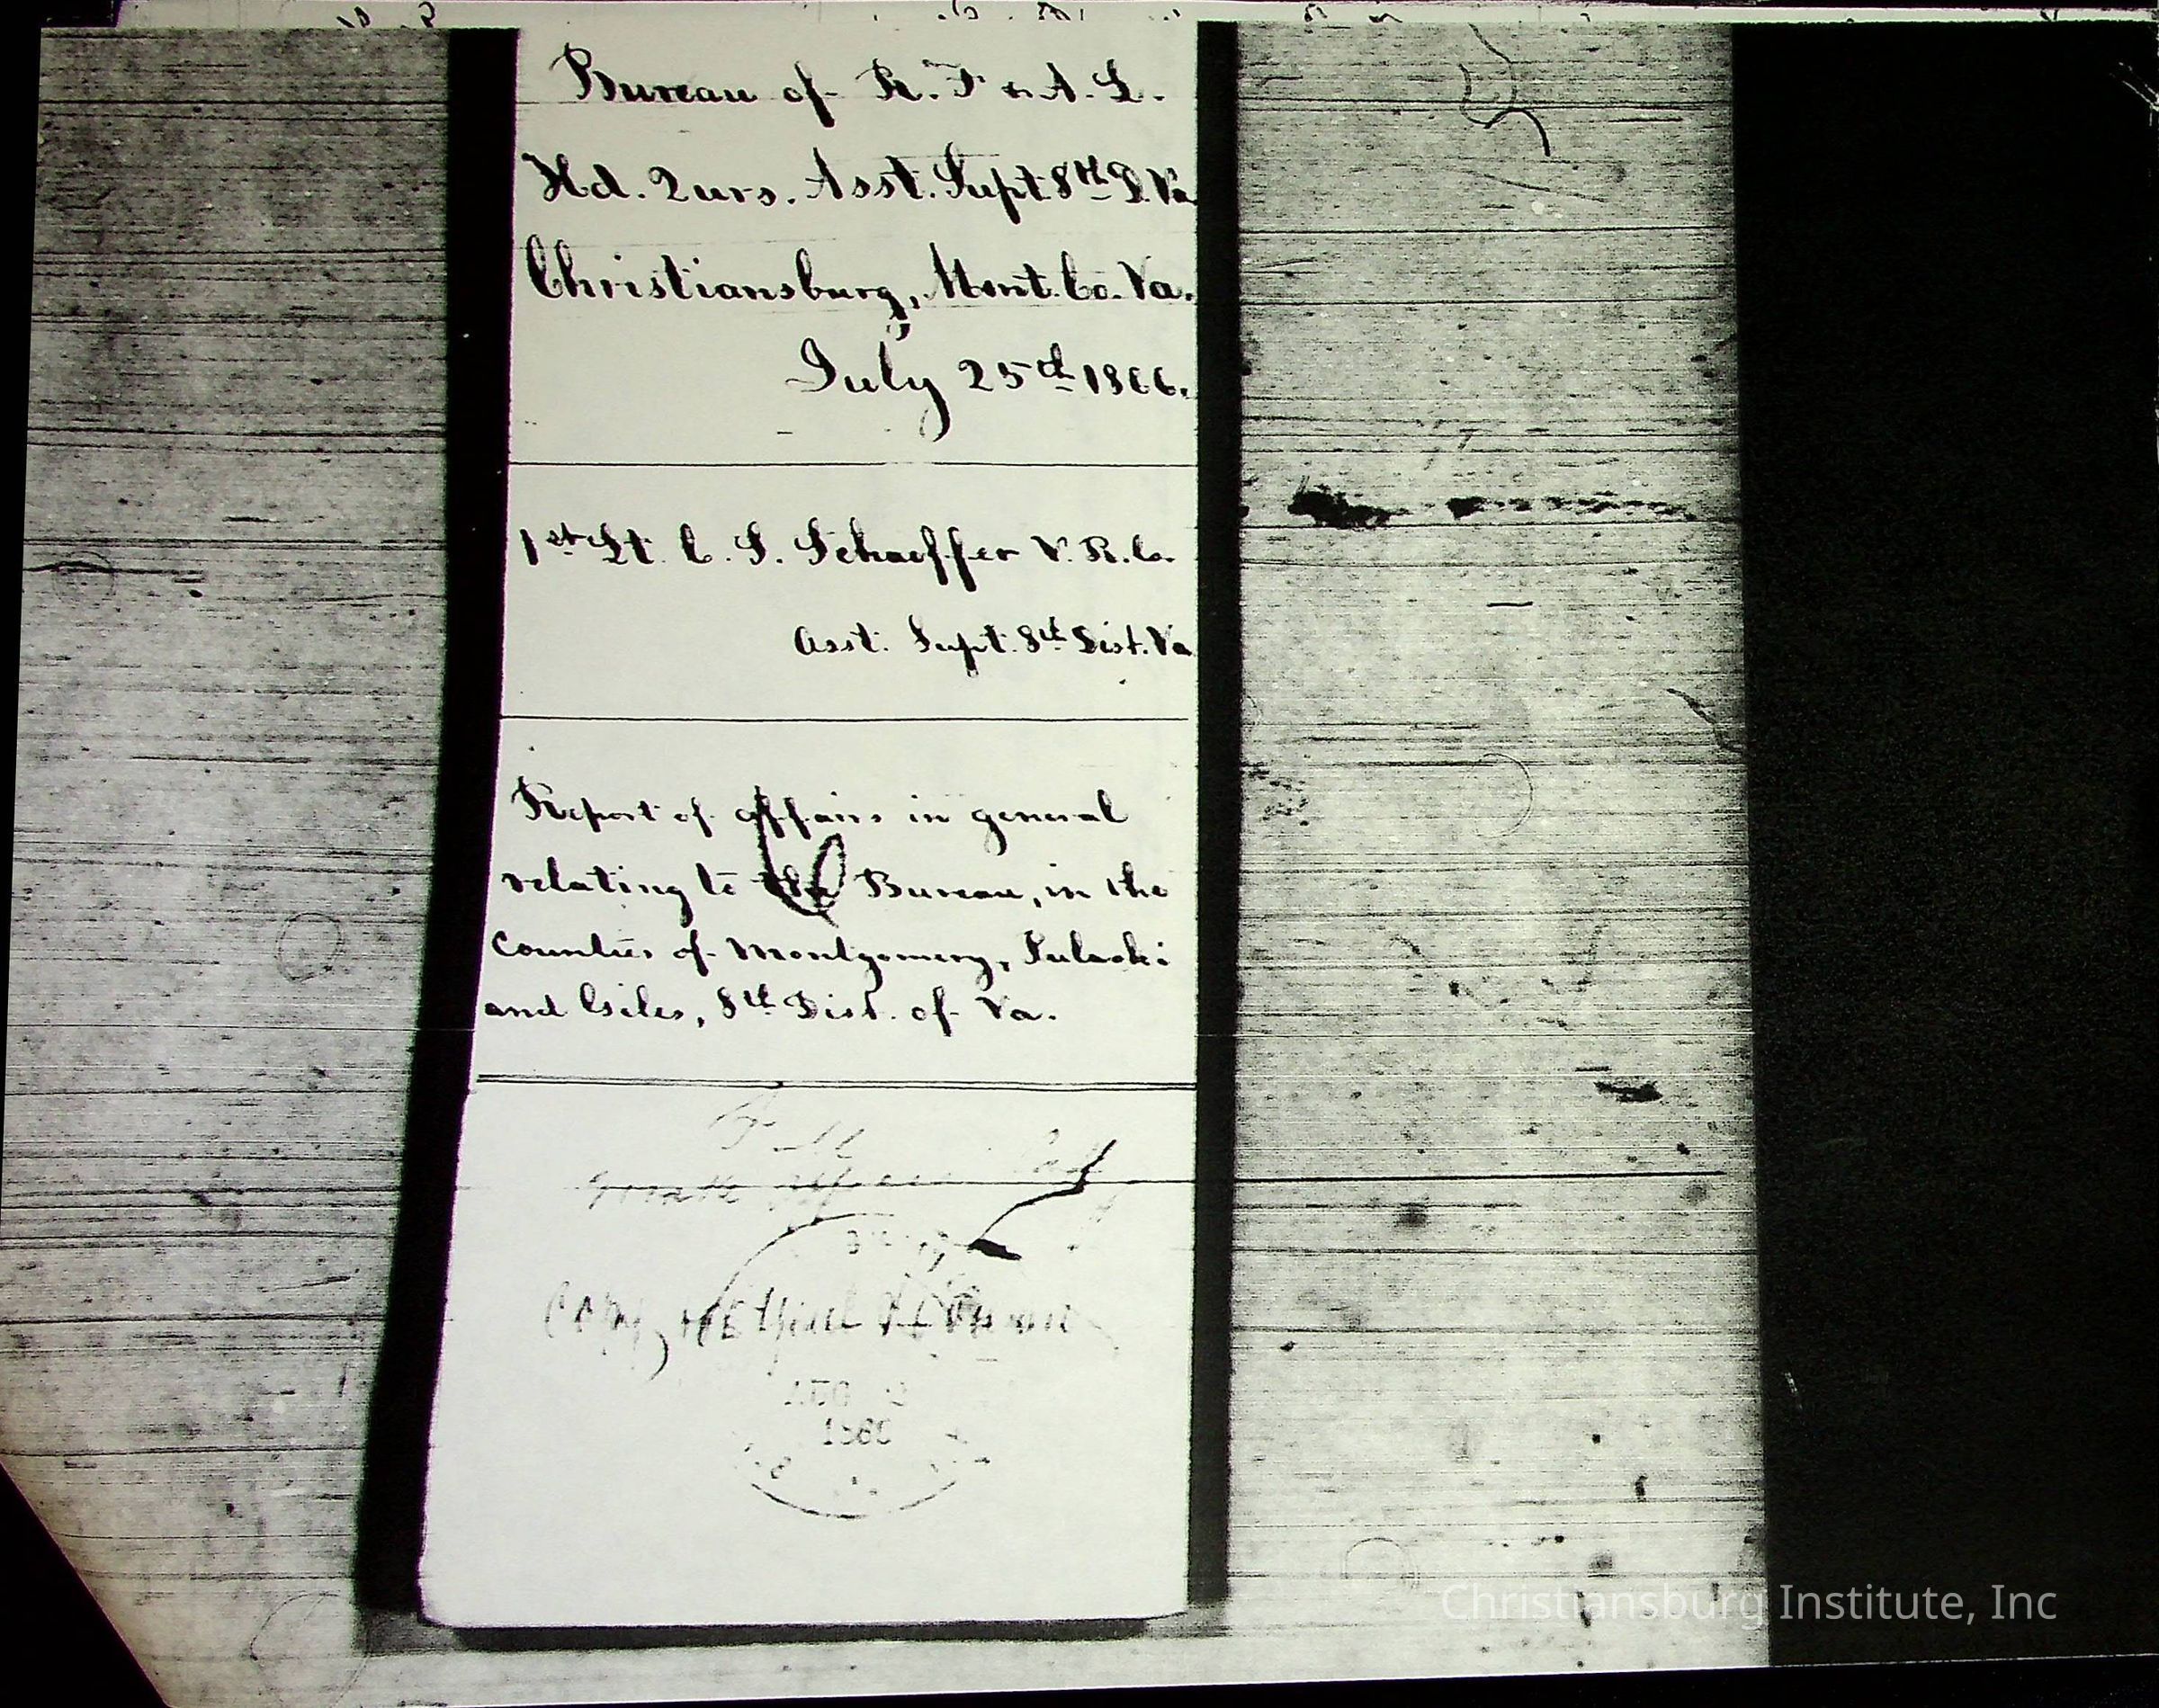 Bureau of R. F & A. L.
Hd. Qurs. Asst. Supt. 8th D. Va
Christiansburg, Mont. Co. Va.
July 25th 1866.
1st Lt. C. S. Schaeffer V. R. C.
Asst. Supt. 8th Dist. Va
Report of affairs in general
relating to the Bureau, in the
Counties of Montgomery, Pulaski
and Giles, 8th Dist. of Va.
Christiansburg Institute, Inc